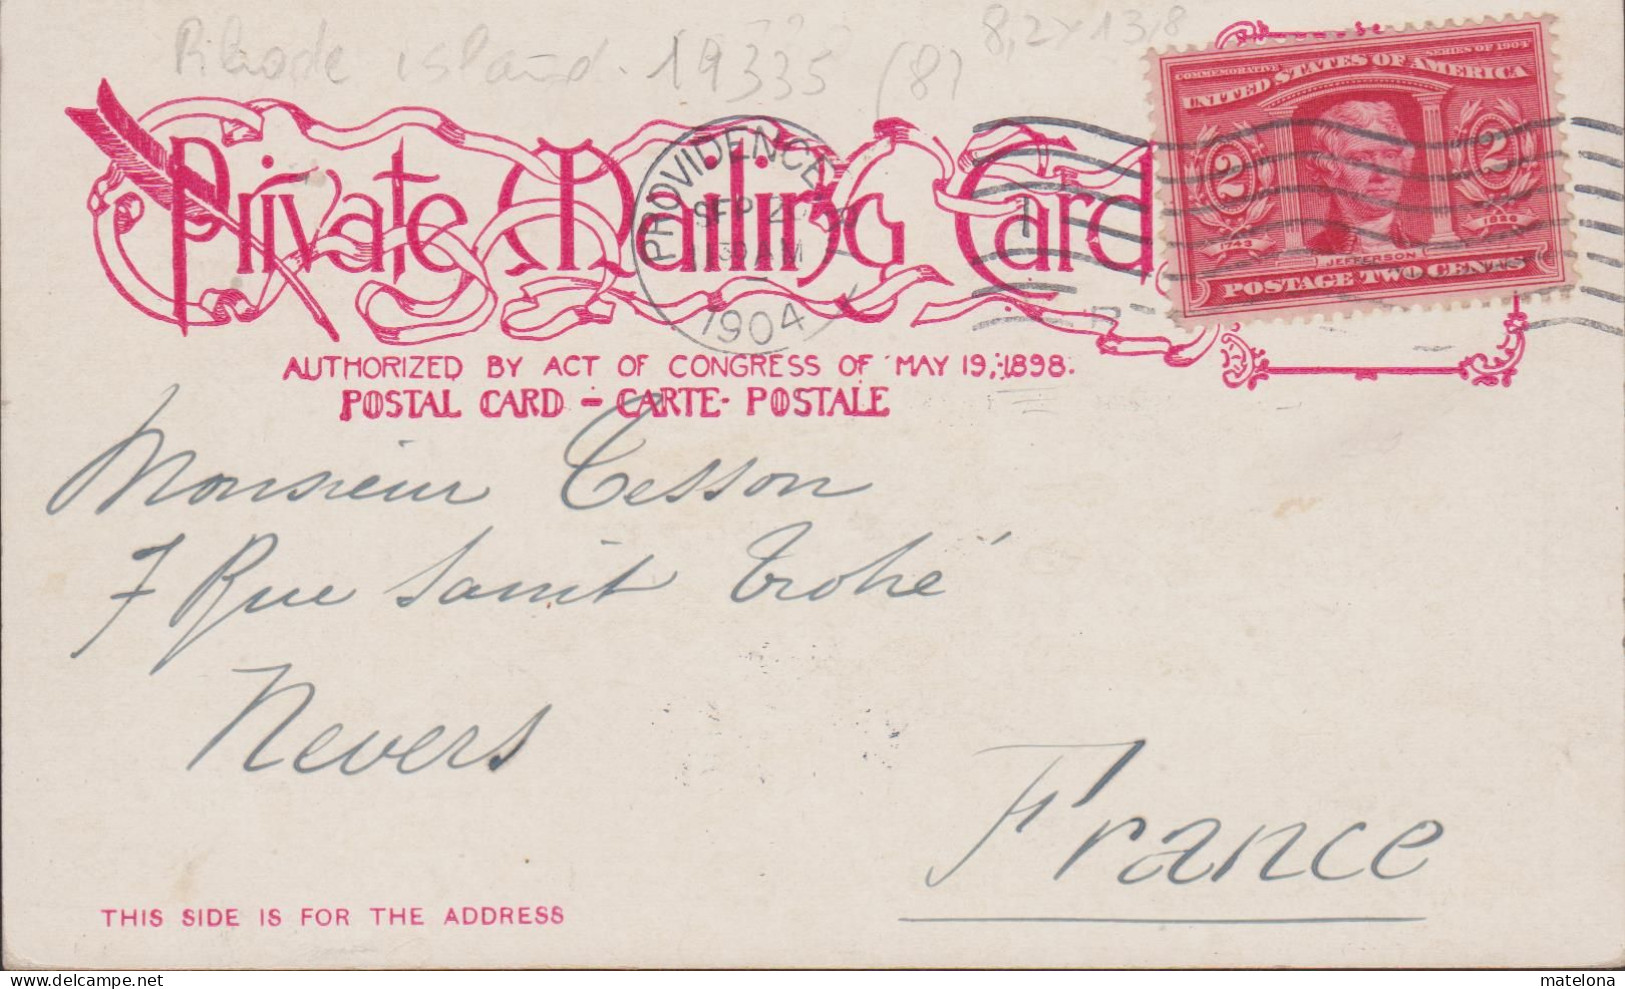 Rhode island. 19335 (8) 8,2x13,8
Private Mailing Card
COMMEMORATIVE SERIES OF 1904
UNITED STATES OF AMERICA
2 2
1743 1826
JEFFERSON
POSTAGE TWO CENTS
PROVIDENCE
SEP 2
30 AM
1904
AUTHORIZED BY ACT OF CONGRESS OF MAY 19, 1898.
POSTAL CARD - CARTE- POSTALE
Monsieur Tesson
7 Rue Saint Trohé
Nevers
France
THIS SIDE IS FOR THE ADDRESS
matelona